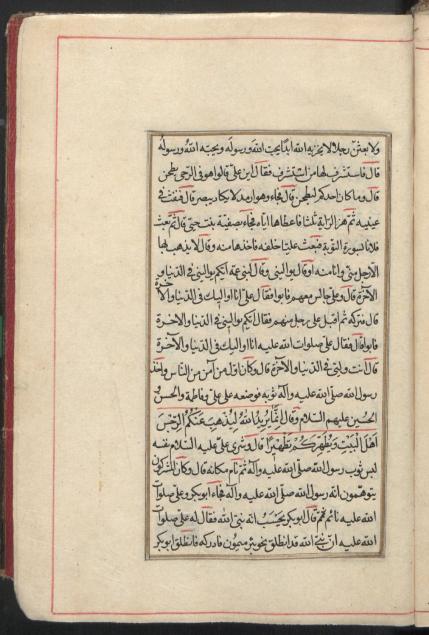 ولابعثن رجلا لايخزيه الله ابدا يحب الله ورسوله ويحبه الله ورسوله
قال فاستشرف لها من استشرف فقال اين على قالوا هو فى الرحى يطحن
قال وما كان احدكم ليطحن قال فجاء وهو ارمد لا يكاد يبصر قال فنفث فى
عينيه ثم هز الراية ثلثا فاعطاها اياه فجاء بصفية بنت حيى قال ثم بعث
فلانا بسورة التوبة فبعث عليا خلفه فاخذها منه وقال لا يذهب بها
الا رجل منى وانا منه قال وقال لبنى عمه ايكم يوالينى فى الدنيا و
الآخرة قال وعلى جالس معهم فابوا فقال على انا اواليك فى الدنيا والآخرة
قال فتركه ثم اقبل على رجل منهم فقال ايكم يوالينى فى الدنيا والاخرة
فابوا قال فقال على صلوات الله عليه انا اواليك فى الدنيا والآخرة
قال انت وليى فى الدنيا والآخرة قال وكان اول من آمن من الناس واخذ
رسول الله صلى الله عليه وآله ثوبه فوضعه على على وفاطمة والحسن و
الحسين عليهم السلام وقال انما يريد الله ليذهب عنكم الرجس
اهل البيت ويطهركم تطهيرا قال وشرى على عليه السلام نفسه
لبس ثوب رسول الله صلى الله عليه وآله ثم نام مكانه قال وكان المشركون
يتوهمون انه رسول الله صلى الله عليه وآله فجاء ابوبكر وعلى صلوات
الله عليه نائم قال ابوبكر يحسب انه نبى الله فقال له على صلوات
الله عليه ان نبى الله قد انطلق نحو بئر ميمون فادركه فانطلق ابوبكر